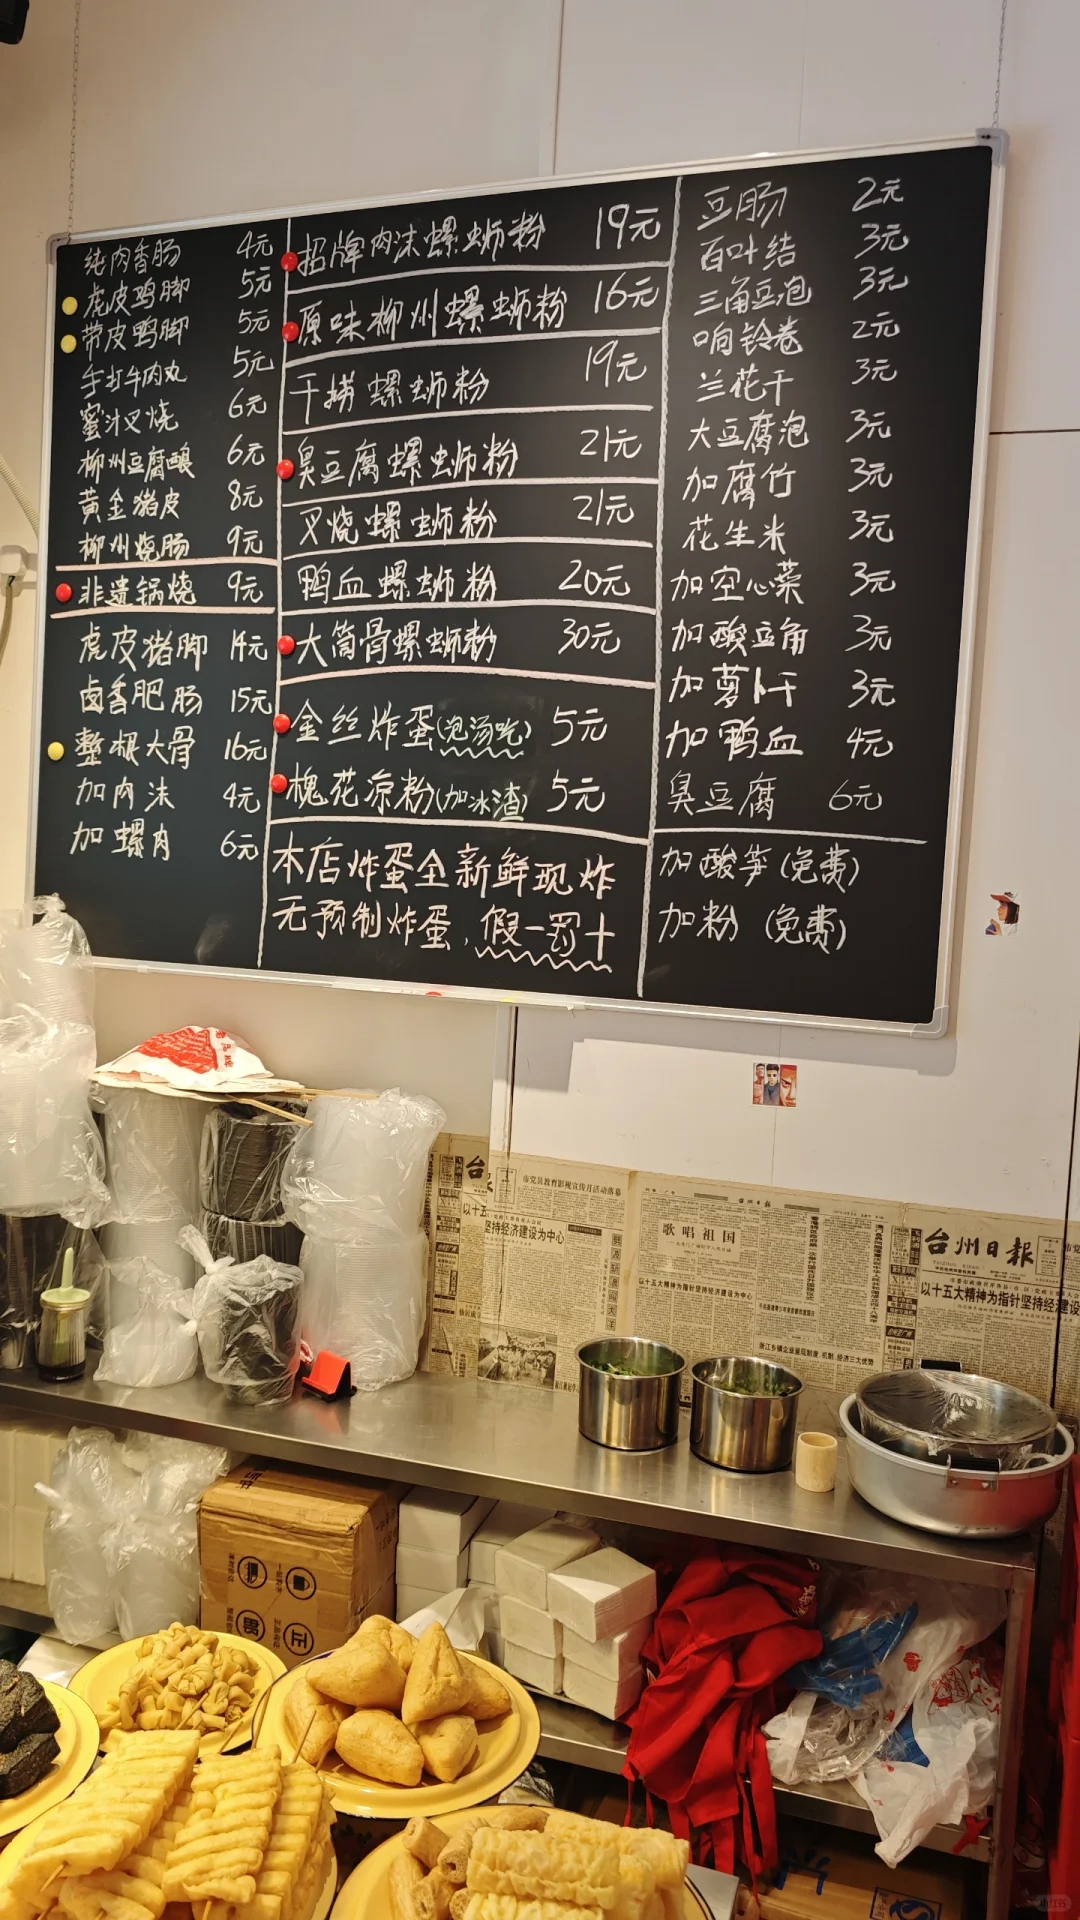 纯肉香肠 4元
虎皮鸡脚 5元
带皮鸭脚 5元
手打牛肉丸 5元
蜜汁叉烧 6元
柳州豆腐酿 6元
黄金猪皮 8元
柳州烧肠 9元
非遗锅烧 9元
虎皮猪脚 14元
卤香肥肠 15元
整根大骨 16元
加肉沫 4元
加螺肉 6元
招牌肉沫螺蛳粉 19元
原味柳州螺蛳粉 16元
干捞螺蛳粉 19元
臭豆腐螺蛳粉 21元
叉烧螺蛳粉 21元
鸭血螺蛳粉 20元
大筒骨螺蛳粉 30元
金丝炸蛋(泡汤吃) 5元
槐花凉粉(加冰渣) 5元
本店炸蛋全新鲜现炸
无预制炸蛋，假一罚十
豆肠 2元
百叶结 3元
三角豆泡 3元
响铃卷 2元
兰花干 3元
大豆腐泡 3元
加腐竹 3元
花生米 3元
加空心菜 3元
加酸豆角 3元
加萝卜干 3元
加鸭血 4元
臭豆腐 6元
加酸笋(免费)
加粉(免费)
市党员教育影视宣传月活动落幕
坚持经济建设为中心
歌唱祖国
以十五大精神为指针坚持经济建设为中心
浙江乡镇企业呈现制度、机制、经济三大优势
台州日报
以十五大精神为指针坚持经济建设